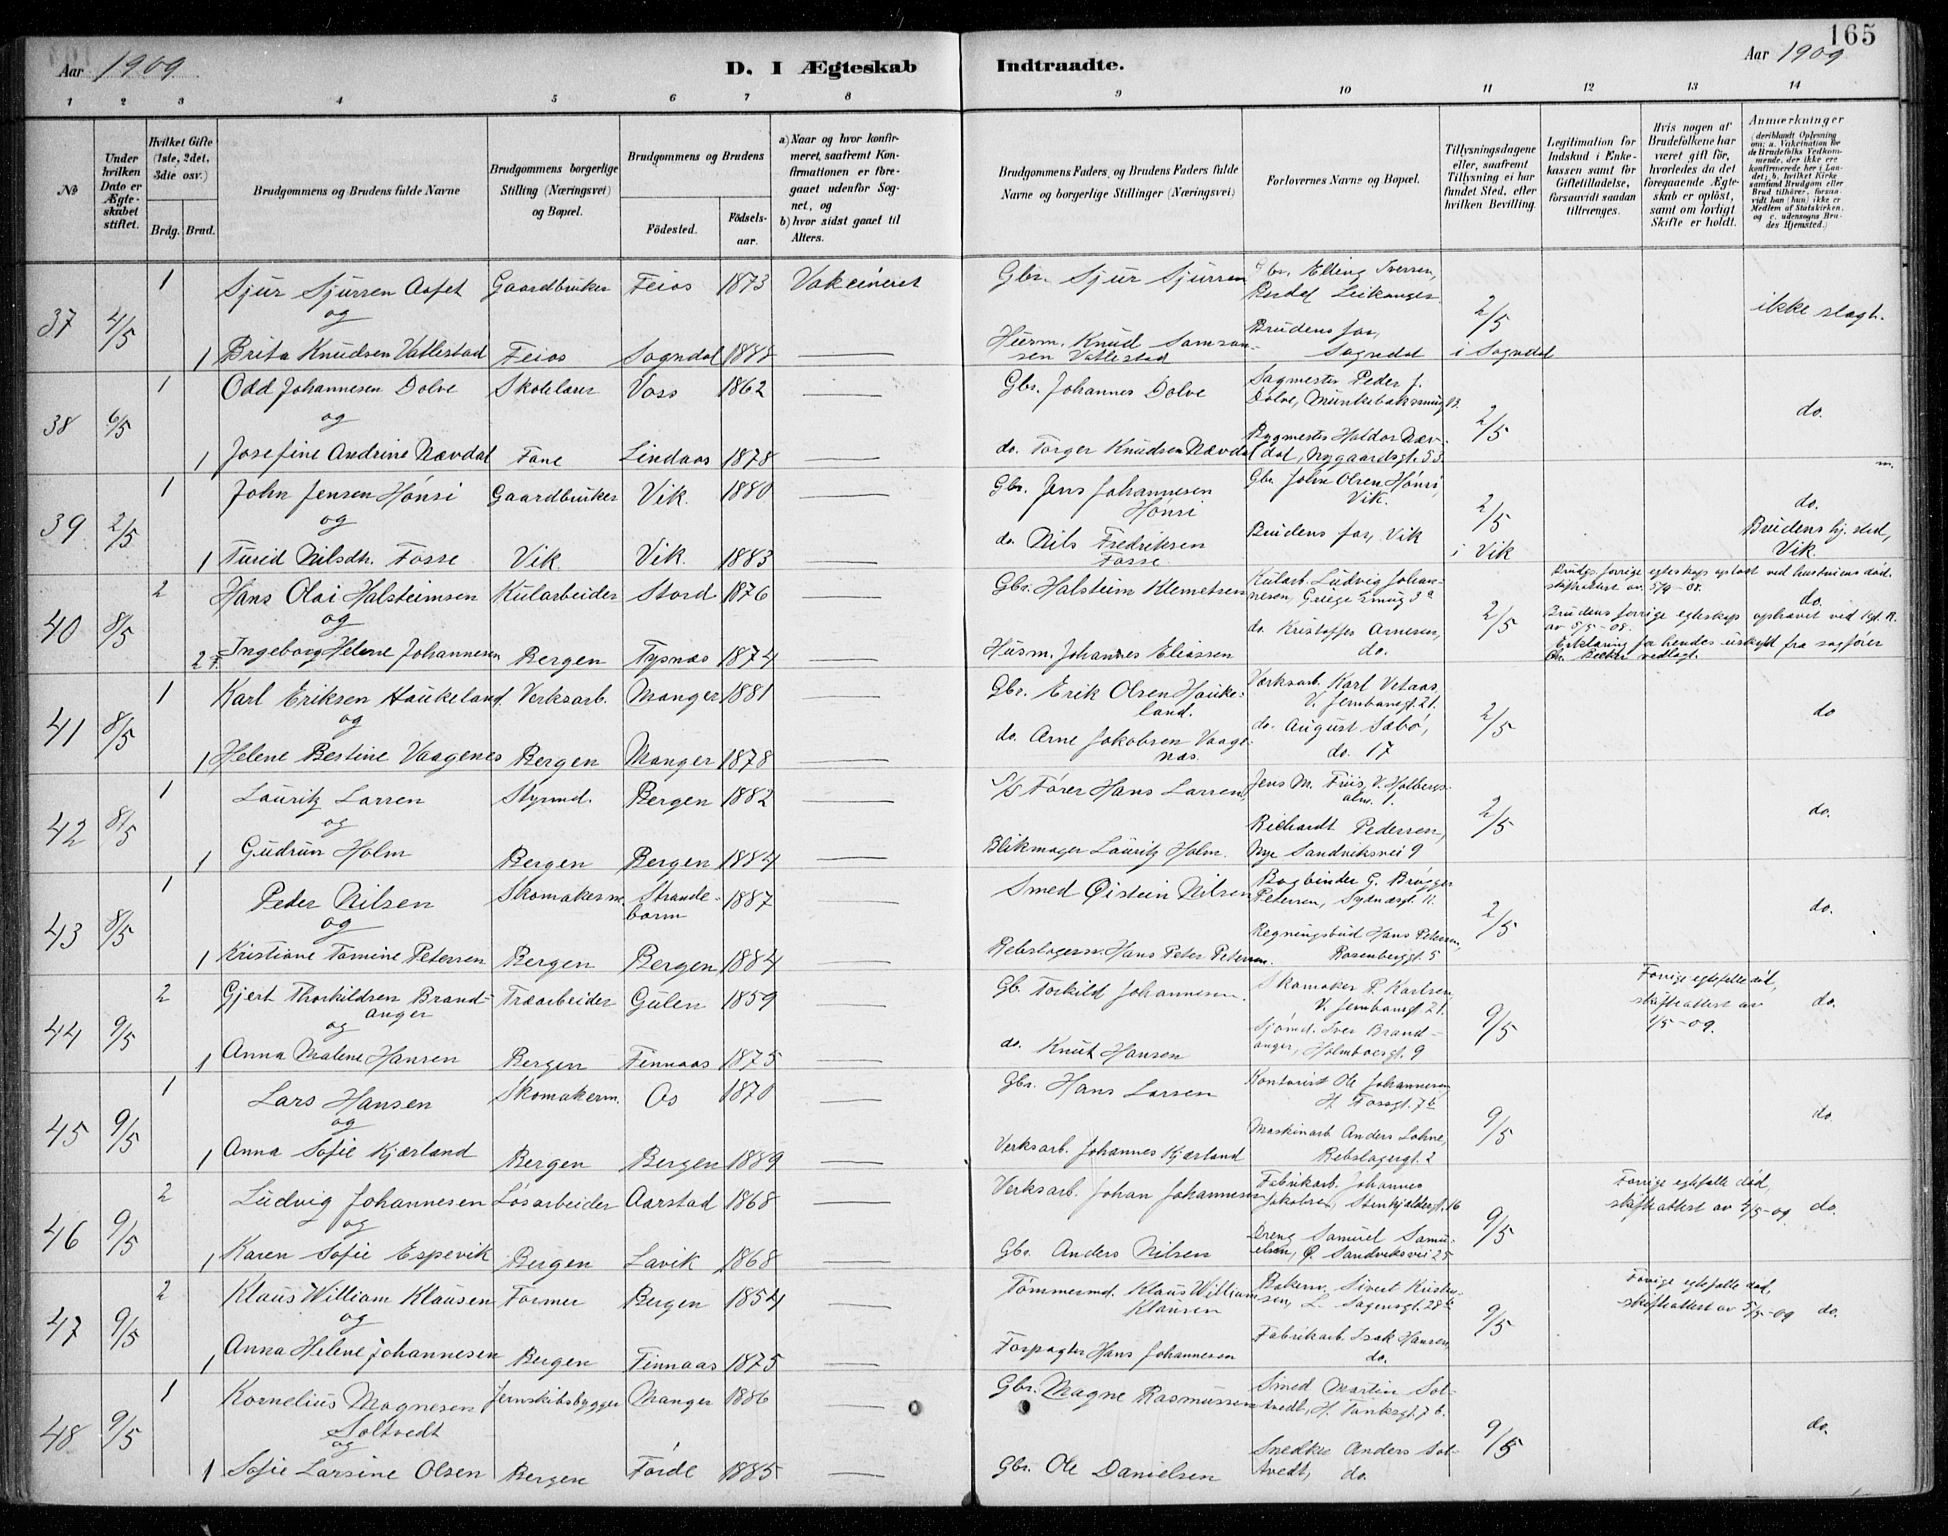 165
Aar 1909
D. I Ægteskab Indtraadte.
Aar 1909
1 2 3 4 5 6 7 8 9 10 11 12 13 14
№
Under hvilken Dato er Ægteskabet stiftet.
Hvilket Gifte (1ste, 2det, 3die osv.)
Brdg. Brud.
Brudgommens og Brudens fulde Navne
Brudgommens borgerlige Stilling (Næringsvei) og Bopæl.
Brudgommens og Brudens
Födested.
Födselsaar.
a) Naar og hvor konfirmeret, saafremt Konfirmationen er foregaaet udenfor Sognet, og
b) hvor sidst gaaet til Alters.
Brudgommens Faders, og Brudens Faders fulde Navne og borgerlige Stillinger (Næringsvei)
Forlovernes Navne og Bopæl.
Tillysningsdagene eller, saafremt Tillysning ei har fundet Sted, efter hvilken Bevilling.
Legitimation for Indskud i Enkekassen samt for Giftetilladelse, forsaavidt saadan tiltrænges.
Hvis nogen af Brudefolkene har været gift för, hvorledes da det foregaaende Ægteskab er oplöst, samt om lovligt Skifte er holdt.
Anmærkninger (deriblandt Oplysning om: a. Vakcination for de Brudefolks Vedkommende, der ikke ere konfirmerede her i Landet; b. hvilket Kirkesamfund Brudgom eller Brud tilhörer, forsaavidt han (hun) ikke er Medlem af Statskirken, og c. udensogns Brudes Hjemsted.)
37 4/5 1 Sjur Sjursen Aafet Gaardbruker Feios 1873 Vakcineret Gbr. Sjur Sjursen Gbr. Elling Iversen, Leikanger 2/5 ikke slagt.
og
1 Brita Knudsen Vatlestad Feios Sogndal 1888 Husm. Knud Samsonsen Vatlestad Brudens far, Sogndal i Sogndal
38 6/5 1 Odd Johannesen Dolve Skolelærer Voss 1862 Gbr. Johannes Dolve Sagmester Peder J. Dolve, Munkebaksmug 13. 2/5 do.
og
1 Josefine Andrine Nævdal Fane Lindaas 1878 do. Torger Knudsen Nævdal Bygmester Haldor Nævdal, Nygaardsgt. 53
39 2/5 1 John Jensen Hønsi Gaardbruker Vik. 1880 Gbr. Jens Johannesen Hønsi Gbr. John Olsen Hønsi, Vik. 2/5 do.
og
1 Turid Nilsdtr. Fosse Vik. Vik. 1883 do. Nils Fredriksen Fosse Brudens far, Vik i Vik Brudens hj. sted, Vik
40 8/5 2 Hans Olai Halsteinsen Kularbeider Stord 1876 Gbr. Halstein Klemetsen Kularb. Ludvig Johannesen, smug 3a 2/5 Brudg. forrige egteskap opløst ved hustruens død. skifteattest av 5/9-08. do.
og
2 Ingeborg Helene Johannesen Bergen Tysnæs 1874 Husm. Johannes Eliassen do. Kristoffer Arnesen, do. Brudens forrige egteskap ophævet ved kgl. R. av 5/5-08. Erklæring for hendes uskyld fra sagfører vedlagt.
41 8/5 1 Karl Eriksen Haukeland Verksarb. Manger 1881 Gbr. Erik Olsen Haukeland. Værksarb. Karl Vetaas, V. Jernbanegt. 21. 2/5 do
og
1 Helene Bestine Vaagenes Bergen Manger 1878 do. Arne Jakobsen Vaagenæs. do. August Sæbø, do. 17
42 8/5 1 Lauritz Larsen Styrmd. Bergen 1882 S/S Fører Hans Larsen, Jens M. Friis, V. Holbergsalm. 1. 2/5 do.
og
1 Gudrun Holm Bergen Bergen 1884 Blikmager Lauritz Holm. Richardt Pedersen, Nye Sandviksvei 9
43 8/5 1 Peter Nilsen Skomakerm. Strandebarm 1887 Smed Øistein Nilsen Bogbinder G. Brøgger Petersen, Sydnæsgt. 11. 2/5 do.
og
1 Kristiane Tomine Petersen Bergen Bergen 1884 Rebslagerm. Hans Peter Petersen. Regningsbud Hans Petersen, Rosenbergt. 5
44 9/5 2 Gjert Thorkildsen Brandanger Træarbeider Gulen 1859 Gb. Torkild Johannesen. Skomaker P. Karlsen, V. Jernbanegt. 21. 9/5 Forrige egtefælle død, skifteattest av 1/5-09. do.
og
1 Anna Malene Hansen Bergen Finnaas 1875 do. Knut Hansen Sjømd. Iver Brandanger, Holmboesgt. 9
45 9/5 1 Lars Hansen Skomakerm. Os 1870 Gbr. Hans Larsen Kontorist Ole Johannesen, H. Fossgt. 7b 9/5 do
og
1 Anna Sofie Kjærland Bergen Bergen 1889 Verksarb. Johannes Kjærland Maskinarb. Anders Lohne, Rebslagergt. 2
46 9/5 2 Ludvig Johannesen Løsarbeider Aarstad 1868 Verksarb. Johan Johannesen Fabrikarb. Johannes Jakobsen, Stenkjeldergt. 16 9/5 Forrige egtefælle død, skifteattest av 4/5-09 do.
og
1 Karen Sofie Espevik Bergen Lavik 1868 Gbr. Anders Nilsen Dreng Samuel Samuelsen, Ø. Sandviksvei 25
47 9/5 2 Klaus William Klausen Former Bergen 1854 Tømmermd. Klaus William Klausen Bakerm. Sivert Kristensen, L. Sagensgt. 28b 9/5 Forrige egtefælle død, skifteattest av 5/5-09 do.
og
1 Anna Helene Johannesen Bergen Finnaas 1875 Forpagter Hans Johannesen Fabrikarb. Isak Hansen, do.
48 9/5 1 Kornelius Magnesen Soltvedt Jernskibsbygger Manger 1886 Gbr. Magne Rasmussen Smed Martin Soltvedt, H. Tanksgt. 7b. 9/5 do.
og
1 Sofie Larsine Olsen Bergen Førde 1885 Gbr. Ole Danielsen Snedker Anders Soltvedt, do.